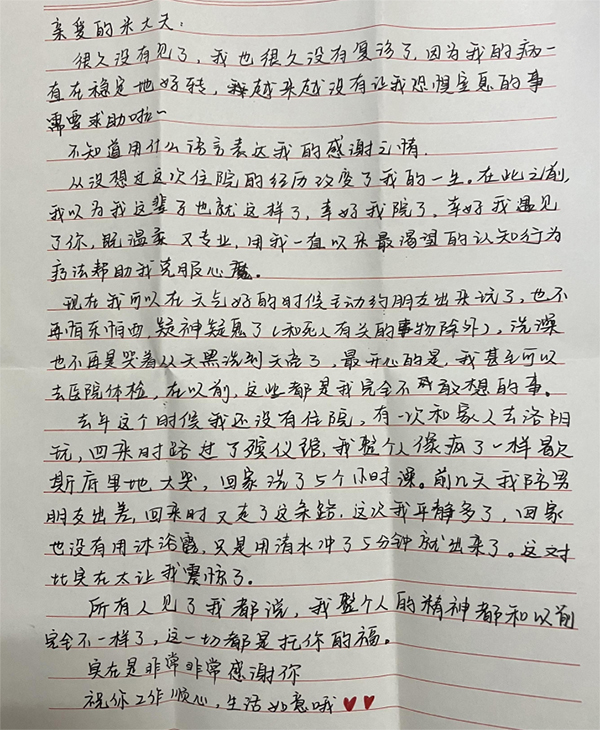 亲爱的米大夫：
很久没有见了，我也很久没有复诊了，因为我的病一
直在稳定地好转，越来越没有让我恐惧至息的事
需要求助啦~
不知道用什么语言表达我的感谢之情.
从没想过这次住院的经历改变了我的一生。在此之前，
我以为我这辈子也就这样了，幸好我院了，幸好我遇见
了你，既温柔又专业，用我一直以来最渴望的认知行为
疗法帮助我克服心魔。
现在我可以在天气好的时候主动约朋友出来玩了，也不
再怕东怕西，疑神疑鬼了（和死人有关的事物除外），洗澡
也不再是哭着从天黑洗到天亮了，最开心的是，我甚至可以
去医院体检，在以前，这些都是我完全不敢想的事。
去年这个时候我还没有住院，有一次和家人去洛阳
玩，回来时路过了殡仪馆，我整个人像疯了一样歇
斯底里地大哭，回家洗了5个小时澡。前几天我陪男
朋友出差，回来时又走了这条路，这次我平静多了，回家
也没有用沐浴露，只是用清水冲了5分钟就出来了。这对
比实在太让我震惊了。
所有人见了我都说，我整个人的精神都和以前
完全不一样了，这一切都是托你的福。
实在是非常非常感谢你
祝你工作顺心，生活如意哦